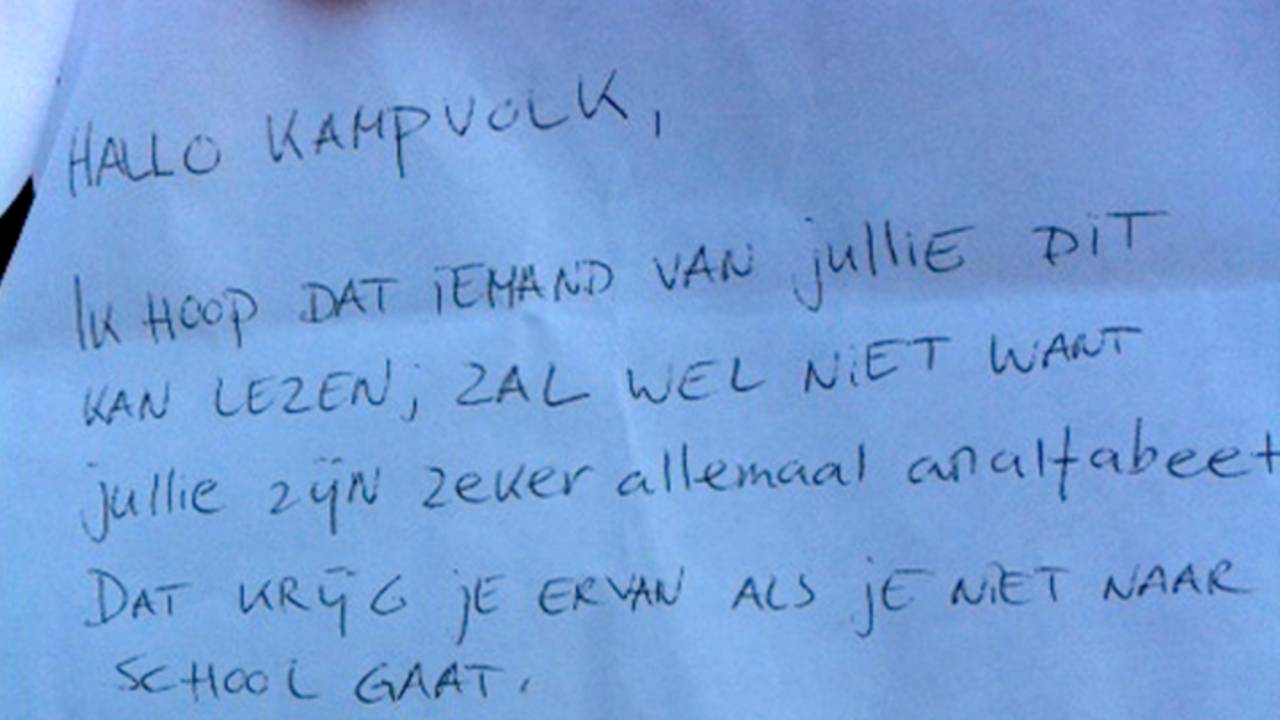 HALLO KAMPVOLK,
IK HOOP DAT IEMAND VAN jullIE DIT
KAN LEZEN; ZAL WEL NIET WANT
jullie zijN zeker allemaal analfabeet
DAT KRIJG jE ERVAN ALS jE NIET NAAR
SCHOOL GAAT.